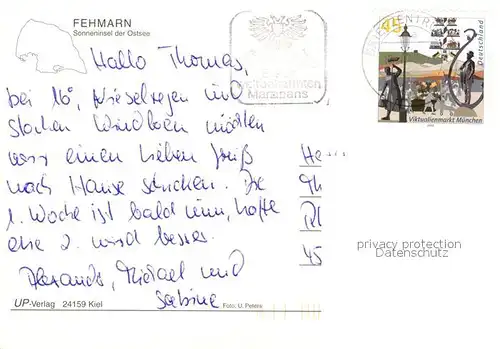 FEHMARN
Sonneninsel der Ostsee
Hallo Thomas,
bei 16°, Nieselregen und
starken Windböen möchten
wir einen lieben Gruß
nach Hause schicken. Die
1. Woche ist bald um, hoffe
die 2. wird besser.
Alexandra, Michael und
Sabine
UP-Verlag 24159 Kiel
Foto: U. Peters
weltbekannten
Marzipans
BRIEFZENTRUM
45
Deutschland
Viktualienmarkt München
He
Th
45
privacy protection
Datenschutz